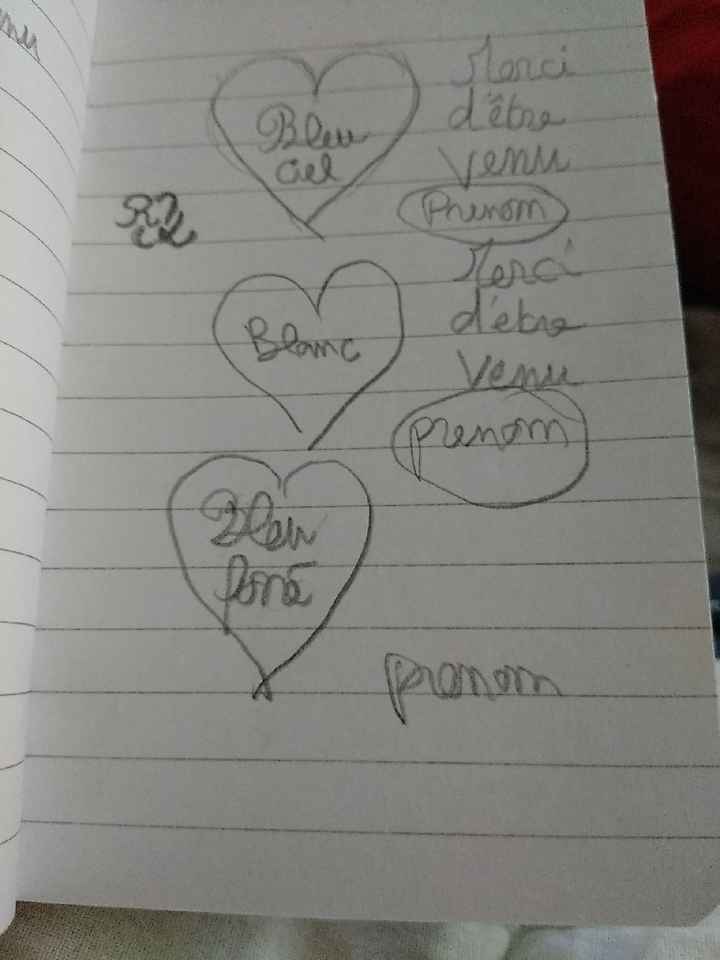 Bleu
ciel
Merci
d'être
venu
Prenom
Blanc
Merci
d'être
venu
prenom
Bleu
foncé
prenom